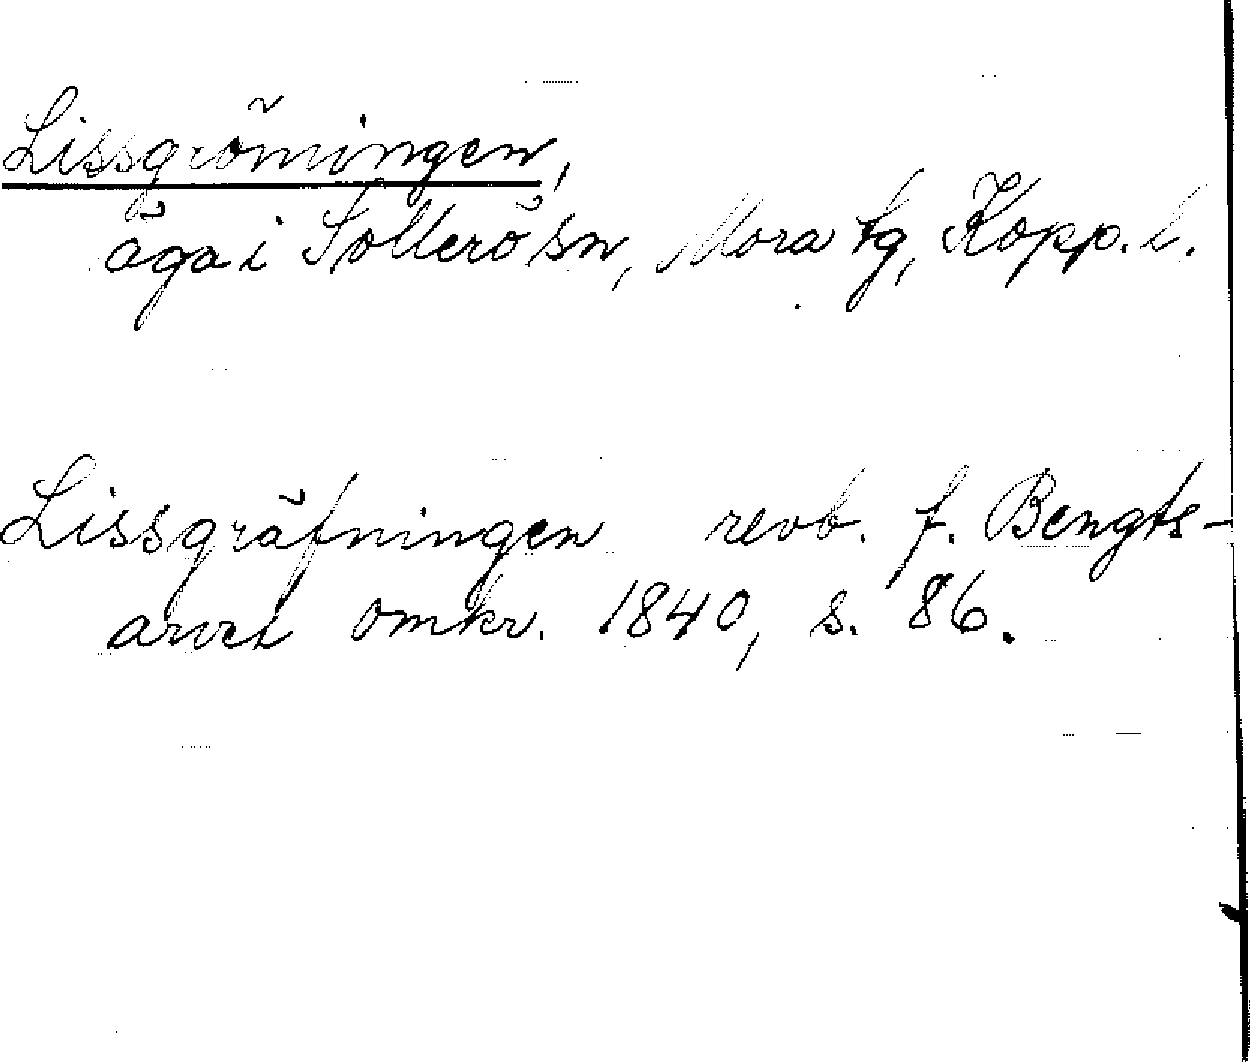 Lissgrömningen,
äga i Sollerö sn, Mora tg, Kopp. l.
Lissgräfningen revb. f. Bengts-
arvet omkr. 1840, s. 86.